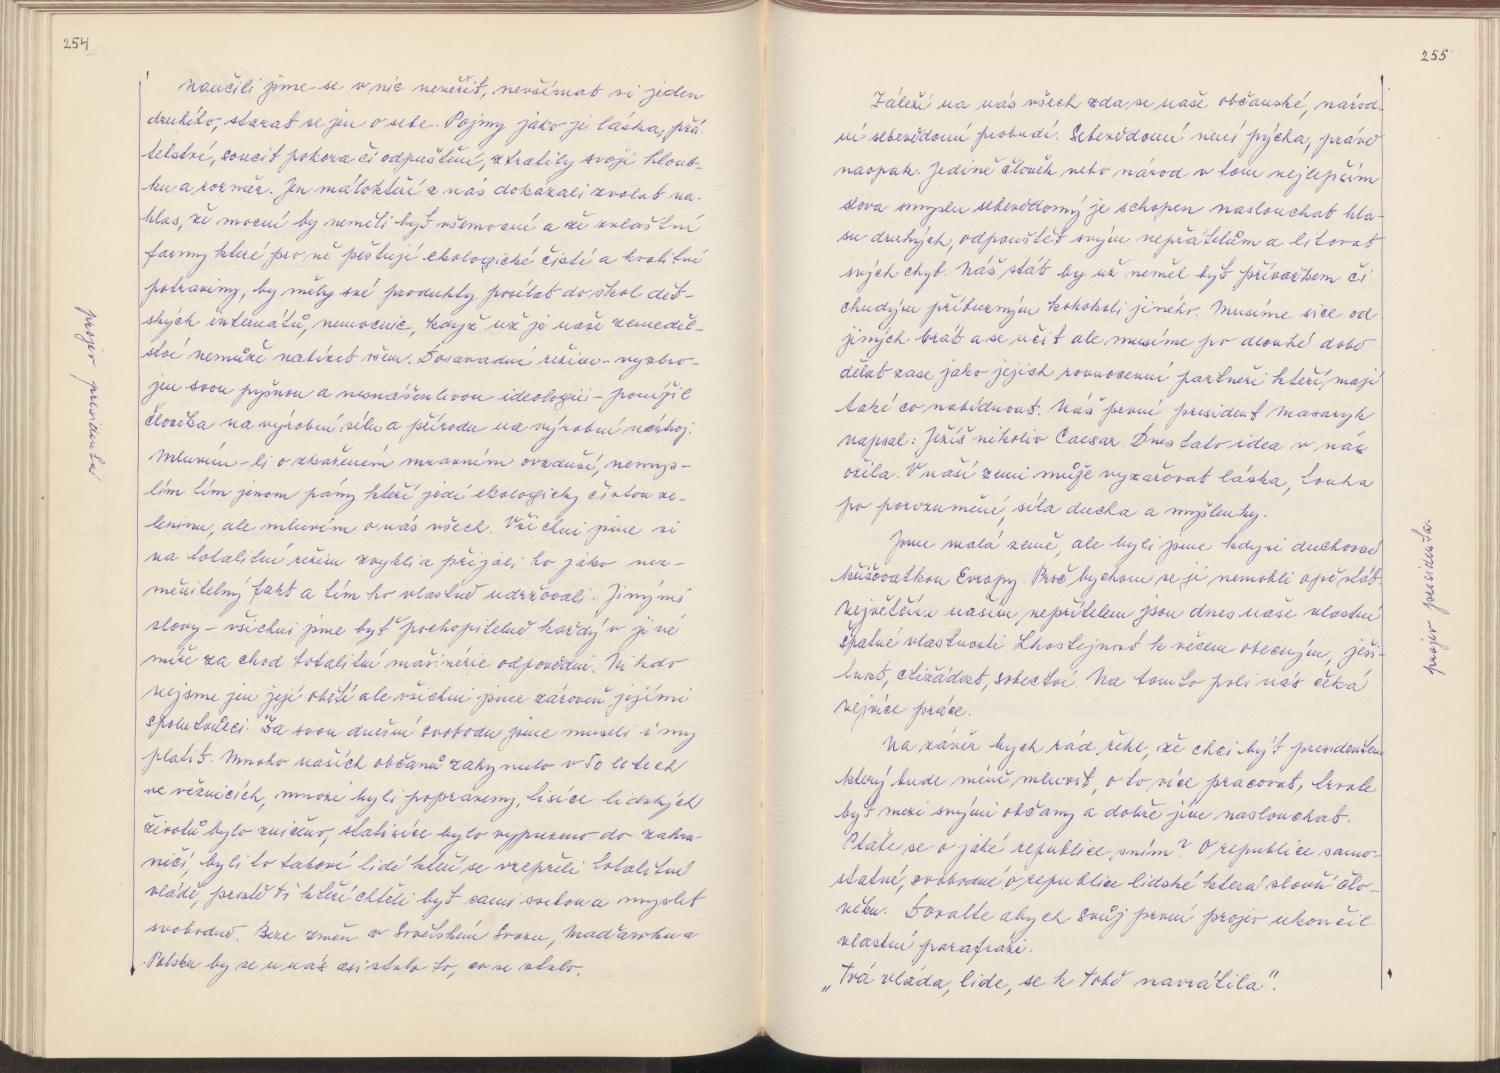 254
Naučili jsme se v nic nevěřit, nevšímat si jeden
druhého, starat se jen o sebe. Pojmy jako je láska, přá-
telství, soucit pokora či odpuštění, ztratily svoji hloub-
ku a rozměr. Jen máloktěří z nás dokázali zvolat na-
hlas, že mocní by neměli být všemocní a že zvláštní
farmy které pro ně pěstují ekologické čisté a kvalitní
potraviny, by měly své produkty posílat do škol dět-
ských internátů, nemocnic, když už je naše zemeděl-
ství nemůže nabízet všem. Dosavadní režim - vyzbro-
jen svou pyšnou a nesnášenlivou ideologií - ponížil
člověka na výrobní sílu a přírodu na výrobní nástroj.
Mluvím-li o zkaženém mravním ovzduší, nemys-
lím tím jenom pány kteří jedí ekologicky čistou ze-
leninu, ale mluvím o nás všech. Všichni jsme si
na totalitní režim zvykli a přijali ho jako nez-
měnitelný fakt a tím ho vlastně udržovali. Jinými
slovy - všichni jsme byť pochopitelně každý v jiné
míře za chod totalitní mašinérie odpovědni. Nikdo
nejsme jen její obětí ale všichni jsme zároveň jejími
spolutvůrci. Za svou dnešní svobodu jsme museli i my
platit. Mnoho našich občanů zahynulo v 50 letech
ve věznicích, mnozí byli popraveny, tisíce lidských
životů bylo zničeno, statisíce bylo vypuzeno do zahra-
ničí, byli to takové lidé kteří se vzepřeli totalitní
vládě, prostě ti kteří chtěli být sami sebou a myslet
svobodně. Beze změn v Sovětském Svazu, Maďarsku a
Polsku by se u nás asi stalo to, co se stalo.
projev presidenta
255
Záleží na nás všech zda se naše občanské, národ-
ní sebevědomí probudí. Sebevědomí není pýcha, právě
naopak. Jedině člověk nebo národ v tom nejlepším
slova smyslu sebevědomý je schopen naslouchat hla-
su druhých, odpouštět svým nepřátelům a litovat
svých chyb. Náš stát by už neměl být přívažkem či
chudým příbuzným kohokoli jiného. Musíme sice od
jiných brát a se učit ale musíme po dlouhé době
dělat zase jako jejich rovnocenní partneři kteří, mají
také co nabídnout. Náš první president Masaryk
napsal: Ježíš nikoliv Caesar. Dnes tato idea v nás
ožila. V naší zemi může vyzařovat láska, touha
po porozumění, síla ducha a myšlenky.
Jsme malá země, ale byli jsme kdysi duchovní
křižovatkou Evropy. Proč bychom se jí nemohli opě stát.
Největším našim, nepřítelem jsou dnes naše vlastní
špatné vlastnosti Lhostejnost k věcem obecným, ješi-
tnost, ctižádost, sobectví. Na tomto poli nás čeká
nejvíce práce.
Na závěr bych rád řekl, že chci být presidentem
který bude méně mluvit, o to více pracovat, trvale
být mezi svými občany a dobře jim naslouchat.
Ptáte se o jaké republice sním? O republice samo-
statné, svobodné o republice lidské která slouží člo-
věku. Dovolte abych svůj první projev ukončil
vlastní parafrází.
„Tvá vláda, lide, se k tobě navrátila".
projev presidenta.